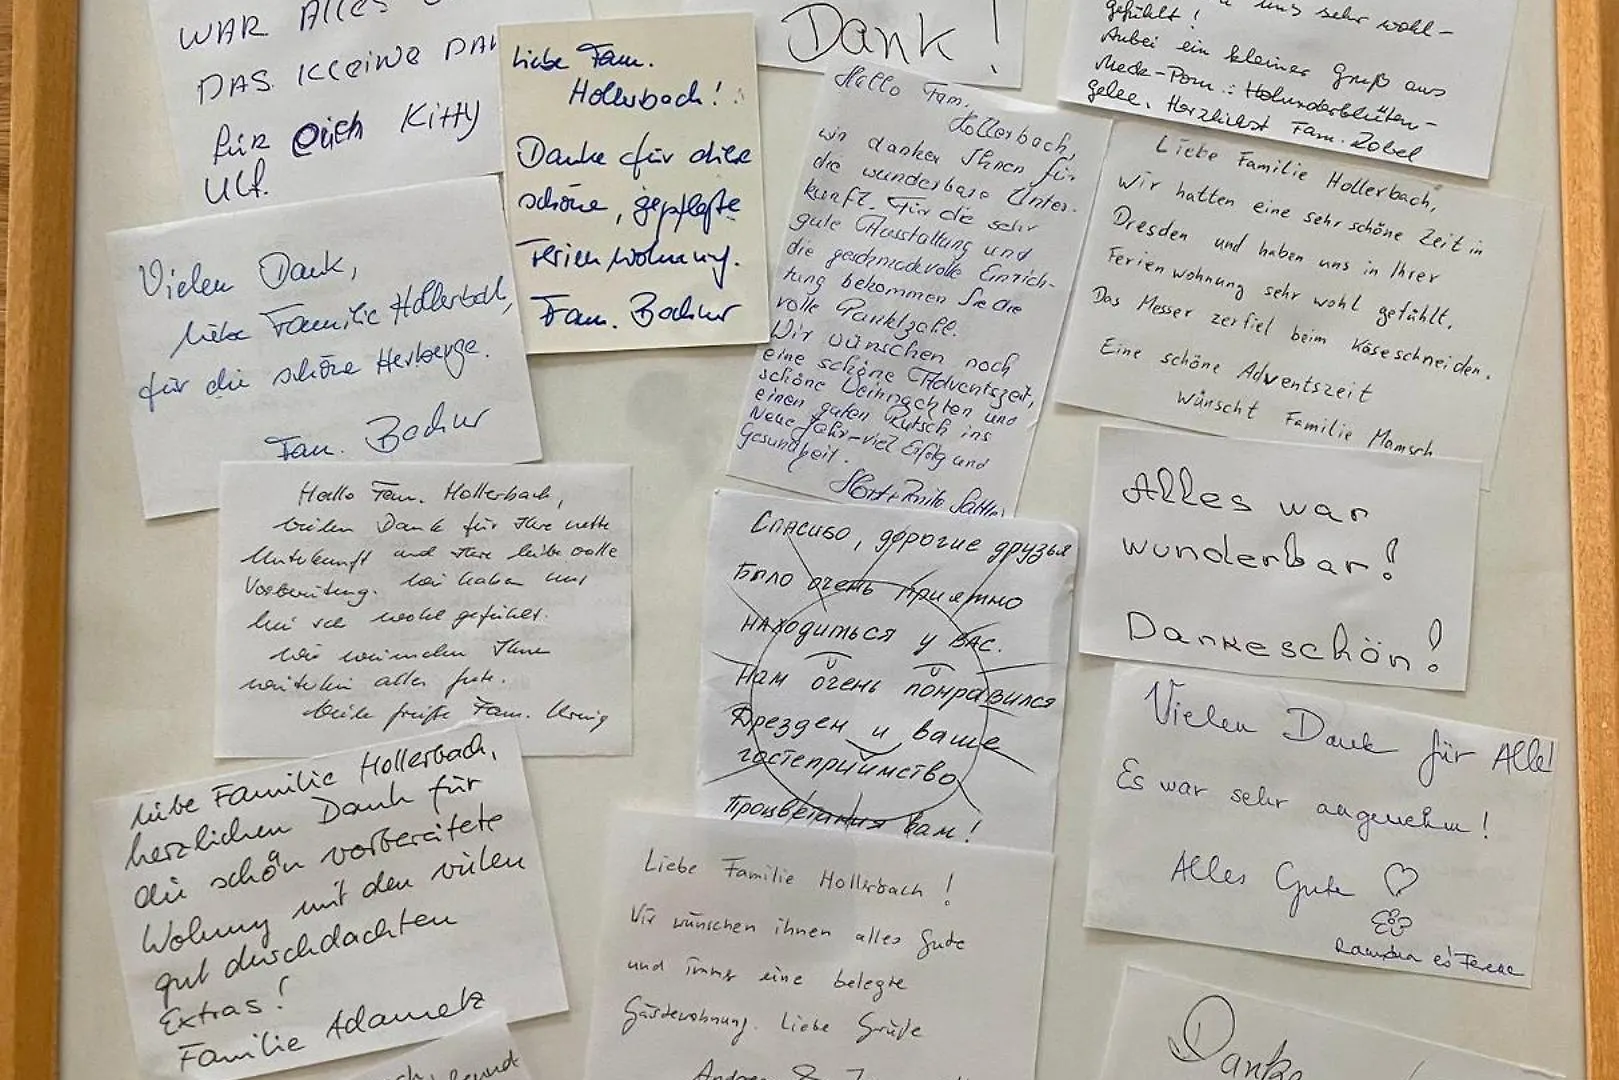 WAR ALLES
DAS KLEINE
FÜR EUCH KITTY
ULF.
Liebe Fam.
Hollerbach!
Danke für diese
schöne, gepflegte
Ferienwohnung.
Fam. Bochur
Dank!
uns sehr wohl-
gefühlt!
Anbei ein kleiner Gruß aus
Meck-Pom.: Holunderblüten-
gelee. Herzlichst Fam. Zobel
Hallo Fam.
Hollerbach,
wir danken Ihnen für
die wunderbare Unter-
kunft. Für die sehr
gute Ausstattung und
die geschmackvolle Einrich-
tung bekommen Sie die
volle Punktzahl.
Wir wünschen noch
eine schöne Adventszeit,
schöne Weihnachten und
einen guten Rutsch ins
Neue Jahr-viel Erfolg und
Gesundheit.
Liebe Familie Hollerbach,
wir hatten eine sehr schöne Zeit in
Dresden und haben uns in Ihrer
Ferienwohnung sehr wohl gefühlt.
Das Messer zerfiel beim Käseschneiden.
Eine schöne Adventszeit
wünscht Familie Mamsch
Vielen Dank,
liebe Familie Hollerbach,
für die schöne Herberge.
Fam. Bochur
Hallo Fam. Hollerbach,
vielen Dank für Ihre nette
Unterkunft und Ihre liebevolle
Vorbereitung. Wir haben uns
hier sehr wohl gefühlt.
Wir wünschen Ihnen
weiterhin alles gute.
Viele Grüße Fam. König
Спасибо, дорогие друзья
Было очень приятно
находиться у вас.
Нам очень понравился
Дрезден и ваше
гостеприимство
Процветания вам!
Alles war
wunderbar!
Dankeschön!
Vielen Dank für Alle!
Es war sehr angenehm!
Alles Gute
és Ferenc
Liebe Familie Hollerbach,
herzlichen Dank für
die schön vorbereitete
Wohnung mit den vielen
gut durchdachten
Extras!
Familie Adametz
Liebe Familie Hollerbach!
Wir wünschen ihnen alles Gute
und immer eine belegte
Gästewohnung. Liebe Grüße
Danke